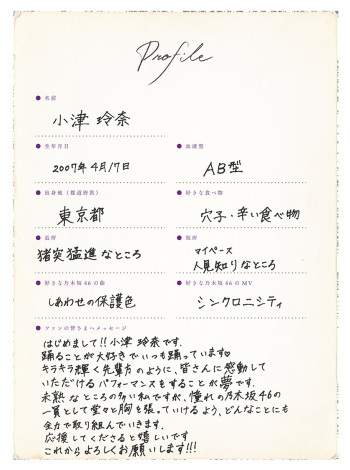 Profile
名前
小津 玲奈
生年月日
血液型
2007年 4月17日
AB型
出身地（都道府県）
好きな食べ物
東京都
穴子・辛い食べ物
長所
短所
猪突猛進なところ
マイペース
人見知りなところ
好きな乃木坂46の曲
好きな乃木坂46のMV
しあわせの保護色
シンクロニシティ
ファンの皆さまへメッセージ
はじめまして!!小津 玲奈です。
踊ることが大好きでいつも踊っています♡
キラキラ輝く先輩方のように、皆さんに感動して
いただけるパフォーマンスをすることが夢です。
未熟なところの多い私ですが、憧れの乃木坂46の
一員として堂々と胸を張っていけるよう、どんなことにも
全力で取り組んでいきます。
応援してくださると嬉しいです
これからよろしくお願いします!!!